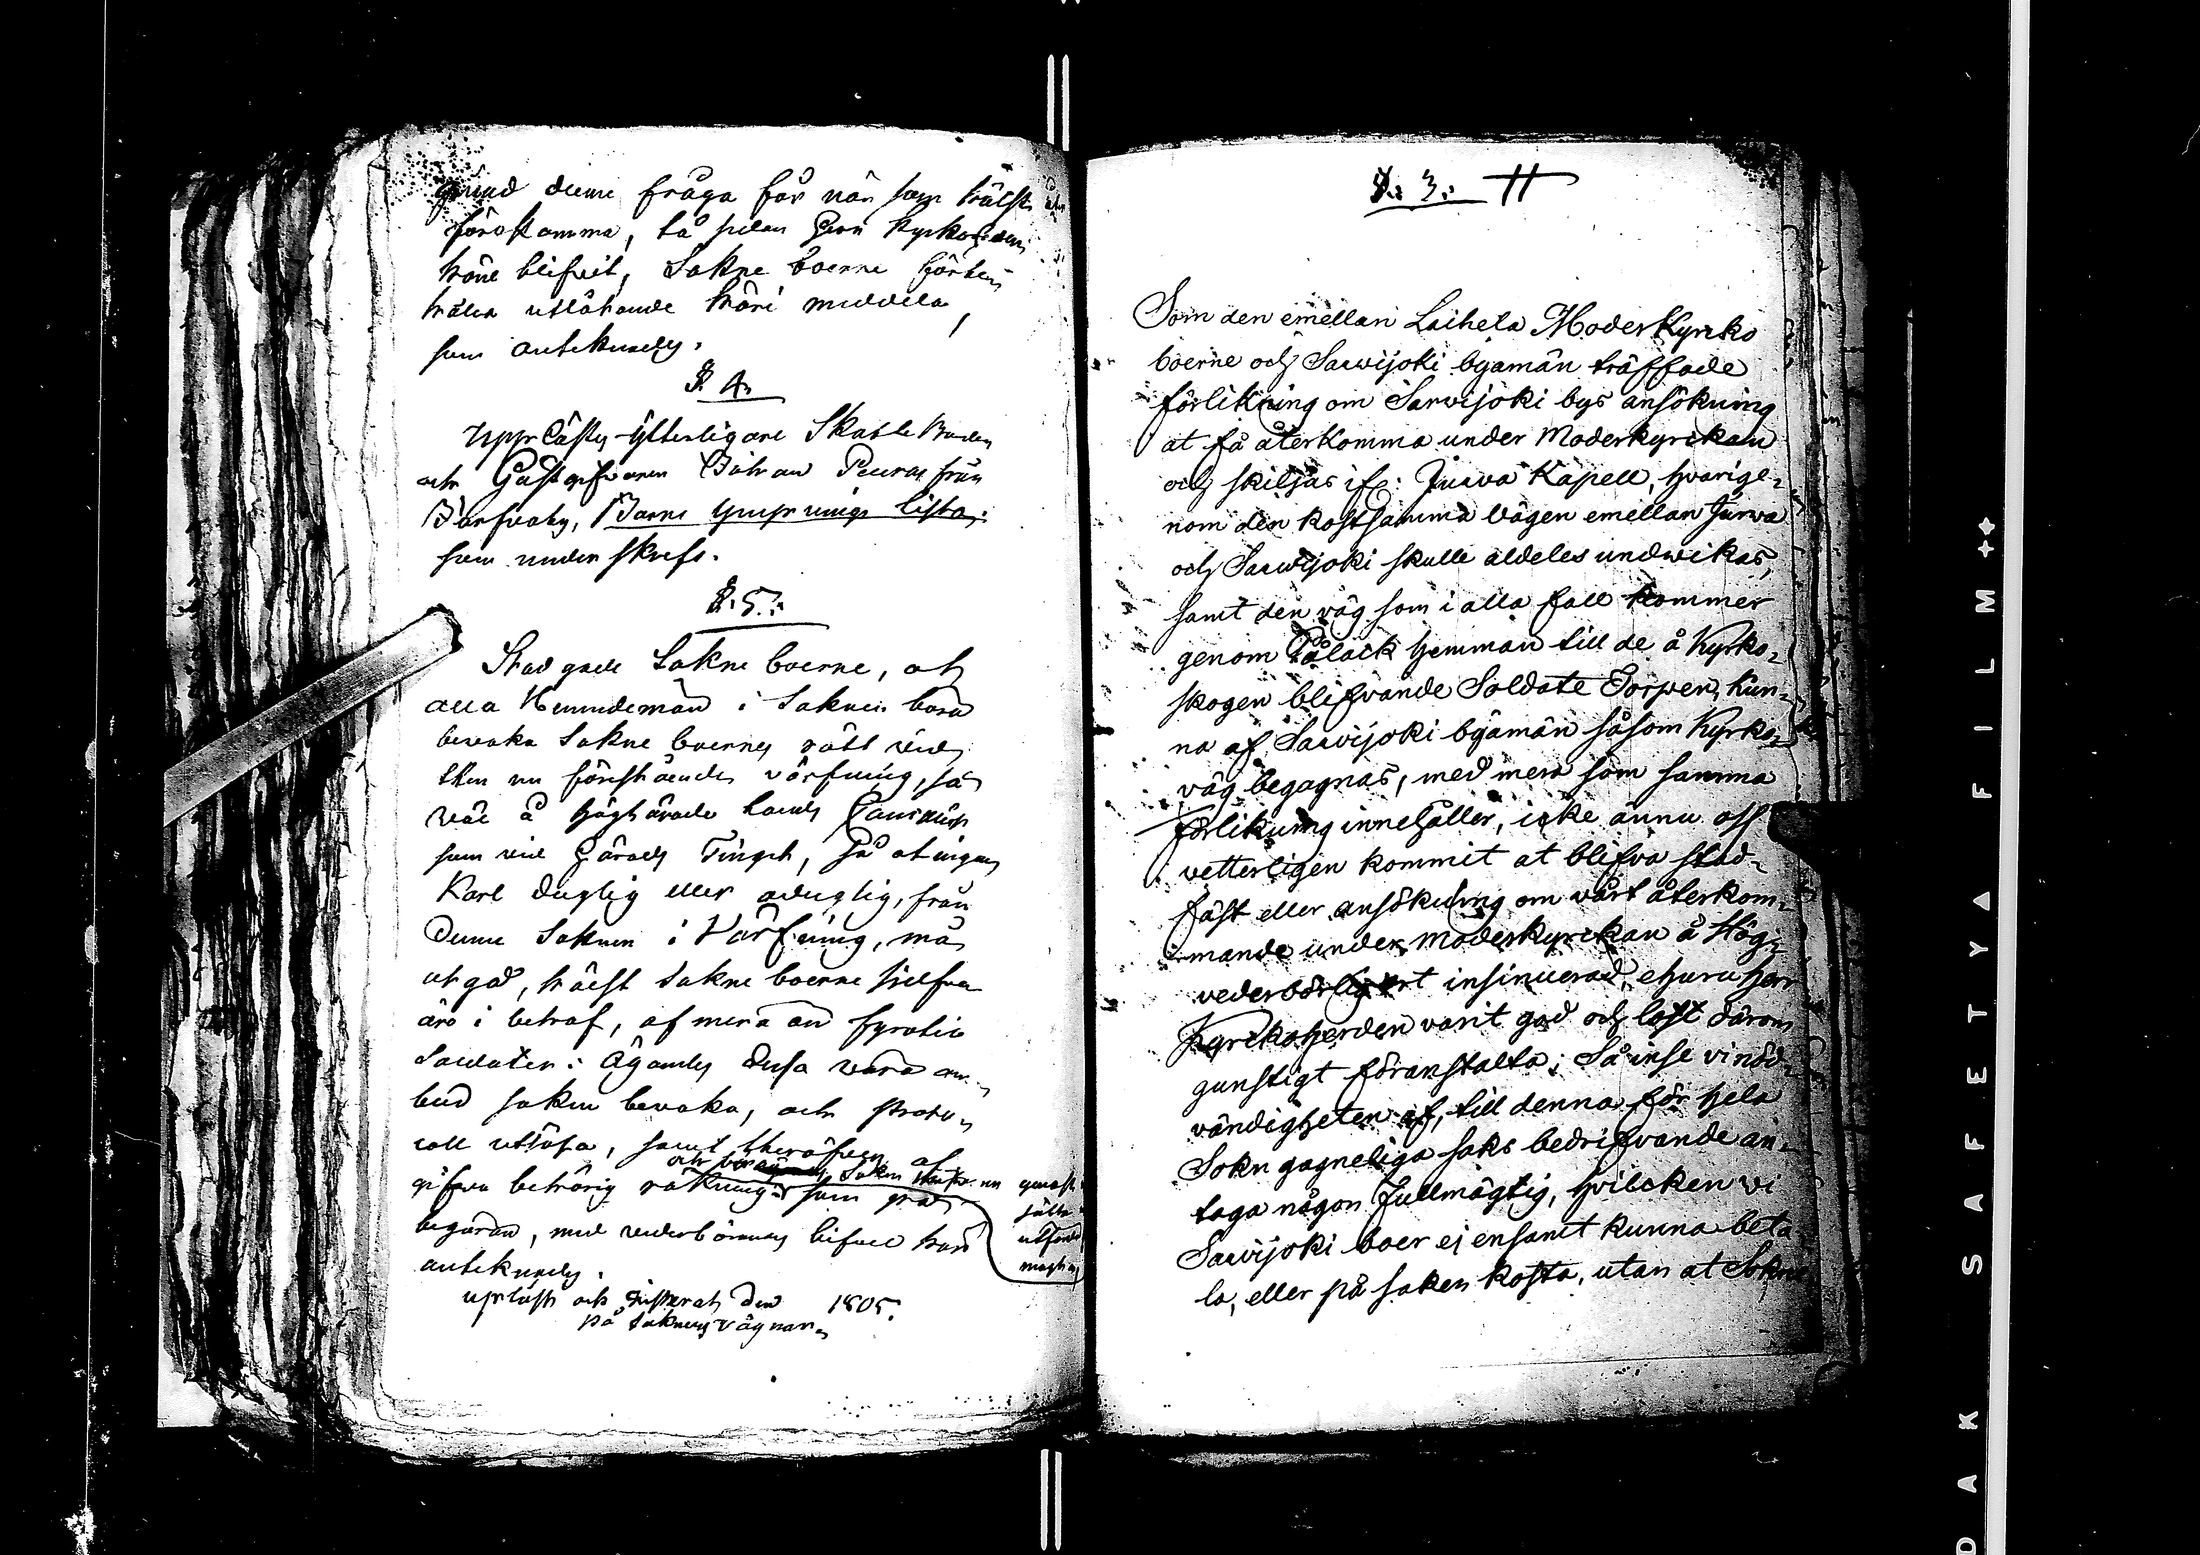 denne fråga får när som hälst
förekomma, så sedan Herr Kyrkoherden
hörd blifvit, Sokne boerne
utlåtande häri meddela,
som antecknades.
§. 4.
Upplästes ytterligare Skatte Bonden
och Gästgifvaren Johan Peuras från
Barns Ympnings lista;
som underskrefs.
§. 5.:
Stadgade Sokne boerne, at
alla Nämndemän i Soknen böra
bevaka Sokne boernes rätt vid
then nu förestående värfning, så
väl å höghärade Lands Cancelliet
som vid Härads Tinget, så at ingen
Karl duglig eller oduglig, från
denne Soknen i Värfning, må
utgå, hälst Sokne boerne sielfva
äro i behof, af mera än fyratio
Soldater: ägandes desse våra om-
bud saken bevaka, och proto-
coll utlösa, samt theröfver af
och Sokn
gifva behörig räkning; som på
begäran, med vederbörandes bifall här
antecknades.
genast
utfärda
upläst och justerat den 1805.
på Soknens vägnar
§. 3.
Som den emellan Laihela Moderkyrko
boerne och Sarvijoki byamän träffade
förlikning om Sarvijoki bys ansökning
at få återkomma under Moderkyrckan
och skiljas ifr: Jurva Kapell, hvarige-
nom den kostsamma vägen emellan Jurva
och Sarvijoki skulle aldeles undwikas,
samt den väg som i alla fall kommer
genom Pålack hemman till de å Kyrko-
skogen blifvande Soldate Torpen, kun-
na af Sarvijoki byamän såsom Kyrko-
väg begagnas, med mera som samma
förlikning innehåller, icke ännu oss
vetterligen kommit at blifva stad-
fäst eller ansökning om vårt återkom-
mande under moderkyrckan å Hög-
vederbörlig ort insinuerad, ehuru herr
Kyrckoherden varit god och låft därom
gunstigt föranstalta; Så inse vi nöd-
vändigheten af, till denna för hela
Sokn gagneliga saks bedrifvande an-
taga någon Fullmägtig, hvilcken vi
Sarvijoki boer ej ensamt kunna beta-
la, eller på saken kosta, utan at Sokne